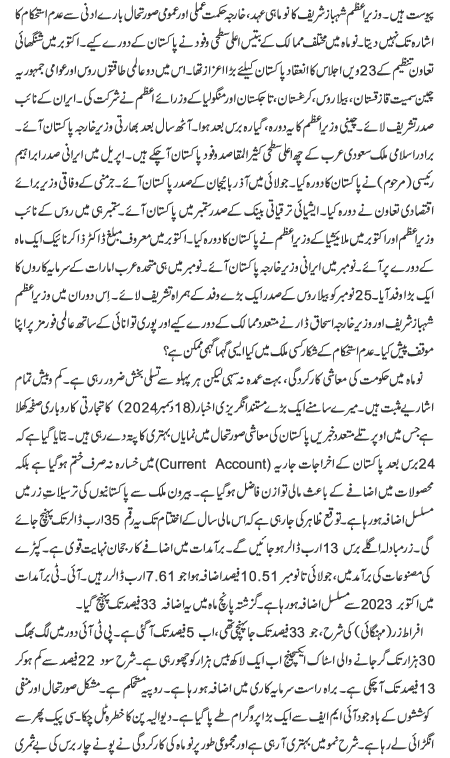 پیوست ہیں۔ وزیراعظم شہباز شریف کا نو ماہی عہد، خارجہ حکمت عملی اور عمومی صورتحال بارے ادنیٰ سے عدم استحکام کا
اشارہ تک نہیں دیتا۔ نو ماہ میں مختلف ممالک کے بتیس اعلیٰ سطحی وفود نے پاکستان کے دورے کیے۔ اکتوبر میں شنگھائی
تعاون تنظیم کے 23ویں اجلاس کا انعقاد پاکستان کیلئے بڑا اعزاز تھا۔ اس میں دو عالمی طاقتوں روس اور عوامی جمہوریہ
چین سمیت قازقستان، بیلا روس، کرغستان، تاجکستان اور منگولیا کے وزرائے اعظم نے شرکت کی۔ ایران کے نائب
صدر تشریف لائے۔ چینی وزیراعظم کا یہ دورہ، گیارہ برس بعد ہوا۔ آٹھ سال بعد بھارتی وزیر خارجہ پاکستان آئے۔
برادر اسلامی ملک سعودی عرب کے چھ اعلیٰ سطحی کثیر المقاصد وفود پاکستان آچکے ہیں۔ اپریل میں ایرانی صدر ابراہیم
رئیسی (مرحوم) نے پاکستان کا دورہ کیا۔ جولائی میں آذربائیجان کے صدر پاکستان آئے۔ جرمنی کے وفاقی وزیر برائے
اقتصادی تعاون نے دورہ کیا۔ ایشیائی ترقیاتی بینک کے صدر ستمبر میں پاکستان آئے۔ ستمبر ہی میں روس کے نائب
وزیراعظم اور اکتوبر میں ملائیشیا کے وزیراعظم نے پاکستان کا دورہ کیا۔ اکتوبر میں معروف مبلغ ڈاکٹر ذاکر نائیک ایک ماہ
کے دورے پر آئے۔ نومبر میں ایرانی وزیر خارجہ پاکستان آئے۔ نومبر میں ہی متحدہ عرب امارات کے سرمایہ کاروں کا
ایک بڑا وفد آیا۔ 25 نومبر کو بیلا روس کے صدر ایک بڑے وفد کے ہمراہ تشریف لائے۔ اِس دوران میں وزیراعظم
شہباز شریف اور وزیر خارجہ اسحاق ڈار نے متعدد ممالک کے دورے کیے اور پوری توانائی کے ساتھ عالمی فورمز پر اپنا
موقف پیش کیا۔ عدم استحکام کے شکار کسی ملک میں کیا ایسی گہما گہمی ممکن ہے؟
نو ماہ میں حکومت کی معاشی کارکردگی، بہت عمدہ نہ سہی لیکن ہر پہلو سے تسلی بخش ضرور رہی ہے۔ کم و بیش تمام
اشاریے مثبت ہیں۔ میرے سامنے ایک بڑے مستند انگریزی اخبار (18 دسمبر 2024) کا تجارتی کاروباری صفحہ کھلا
ہے جس میں اوپر تلے متعدد خبریں پاکستان کی معاشی صورتحال میں نمایاں بہتری کا پتہ دے رہی ہیں۔ بتایا گیا ہے کہ
24 برس بعد پاکستان کے اخراجات جاریہ (Current Account) میں خسارہ نہ صرف ختم ہو گیا ہے بلکہ
محصولات میں اضافے کے باعث مالی توازن فاضل ہو گیا ہے۔ بیرون ملک سے پاکستانیوں کی ترسیلات زر میں
مسلسل اضافہ ہو رہا ہے۔ توقع ظاہر کی جا رہی ہے کہ اس مالی سال کے اختتام تک یہ رقم 35 ارب ڈالر تک پہنچ جائے
گی۔ زرمبادلہ اگلے برس 13 ارب ڈالر ہو جائیں گے۔ برآمدات میں اضافے کا رجحان نہایت قوی ہے۔ کپڑے
کی مصنوعات کی برآمد میں، جولائی تا نومبر 10.51 فیصد اضافہ ہوا جو 7.61 ارب ڈالر رہیں۔ آئی۔ ٹی برآمدات
میں اکتوبر 2023 سے مسلسل اضافہ ہو رہا ہے۔ گزشتہ پانچ ماہ میں یہ اضافہ 33 فیصد تک پہنچ گیا۔
افراط زر (مہنگائی) کی شرح، جو 33 فیصد تک جا پہنچی تھی، اب 5 فیصد تک آ گئی ہے۔ پی ٹی آئی دور میں لگ بھگ
30 ہزار تک گر جانے والی اسٹاک ایکسچینج اب ایک لاکھ بیس ہزار کو چھو رہی ہے۔ شرح سود 22 فیصد سے کم ہو کر
13 فیصد تک آ چکی ہے۔ براہ راست سرمایہ کاری میں اضافہ ہو رہا ہے۔ روپیہ مستحکم ہے۔ مشکل صورتحال اور منفی
کوششوں کے باوجود آئی ایم ایف سے ایک بڑا پروگرام طے پا گیا ہے۔ دیوالیہ پن کا خطرہ ٹل چکا۔ سی پیک پھر سے
انگڑائی لے رہا ہے۔ شرح نمو میں بہتری آ رہی ہے اور مجموعی طور پر نو ماہ کی کارکردگی نے پونے چار برس کی بے ثمری